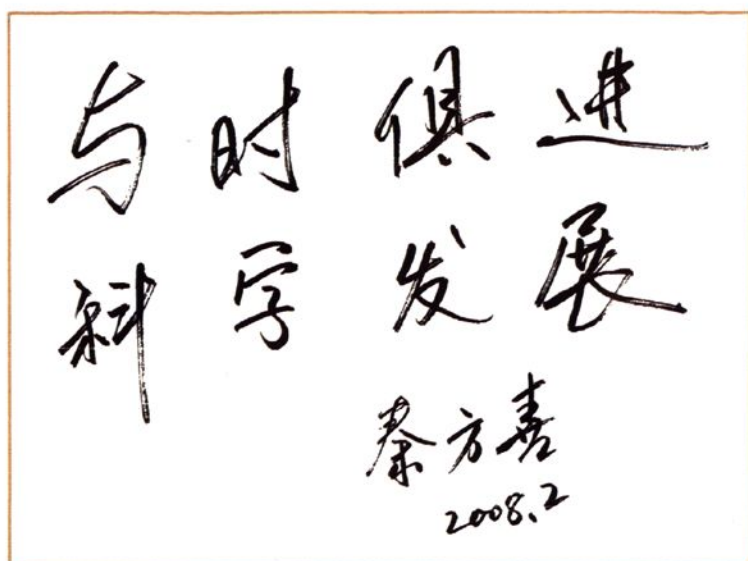 与时俱进
科学发展
秦方喜
2008.2